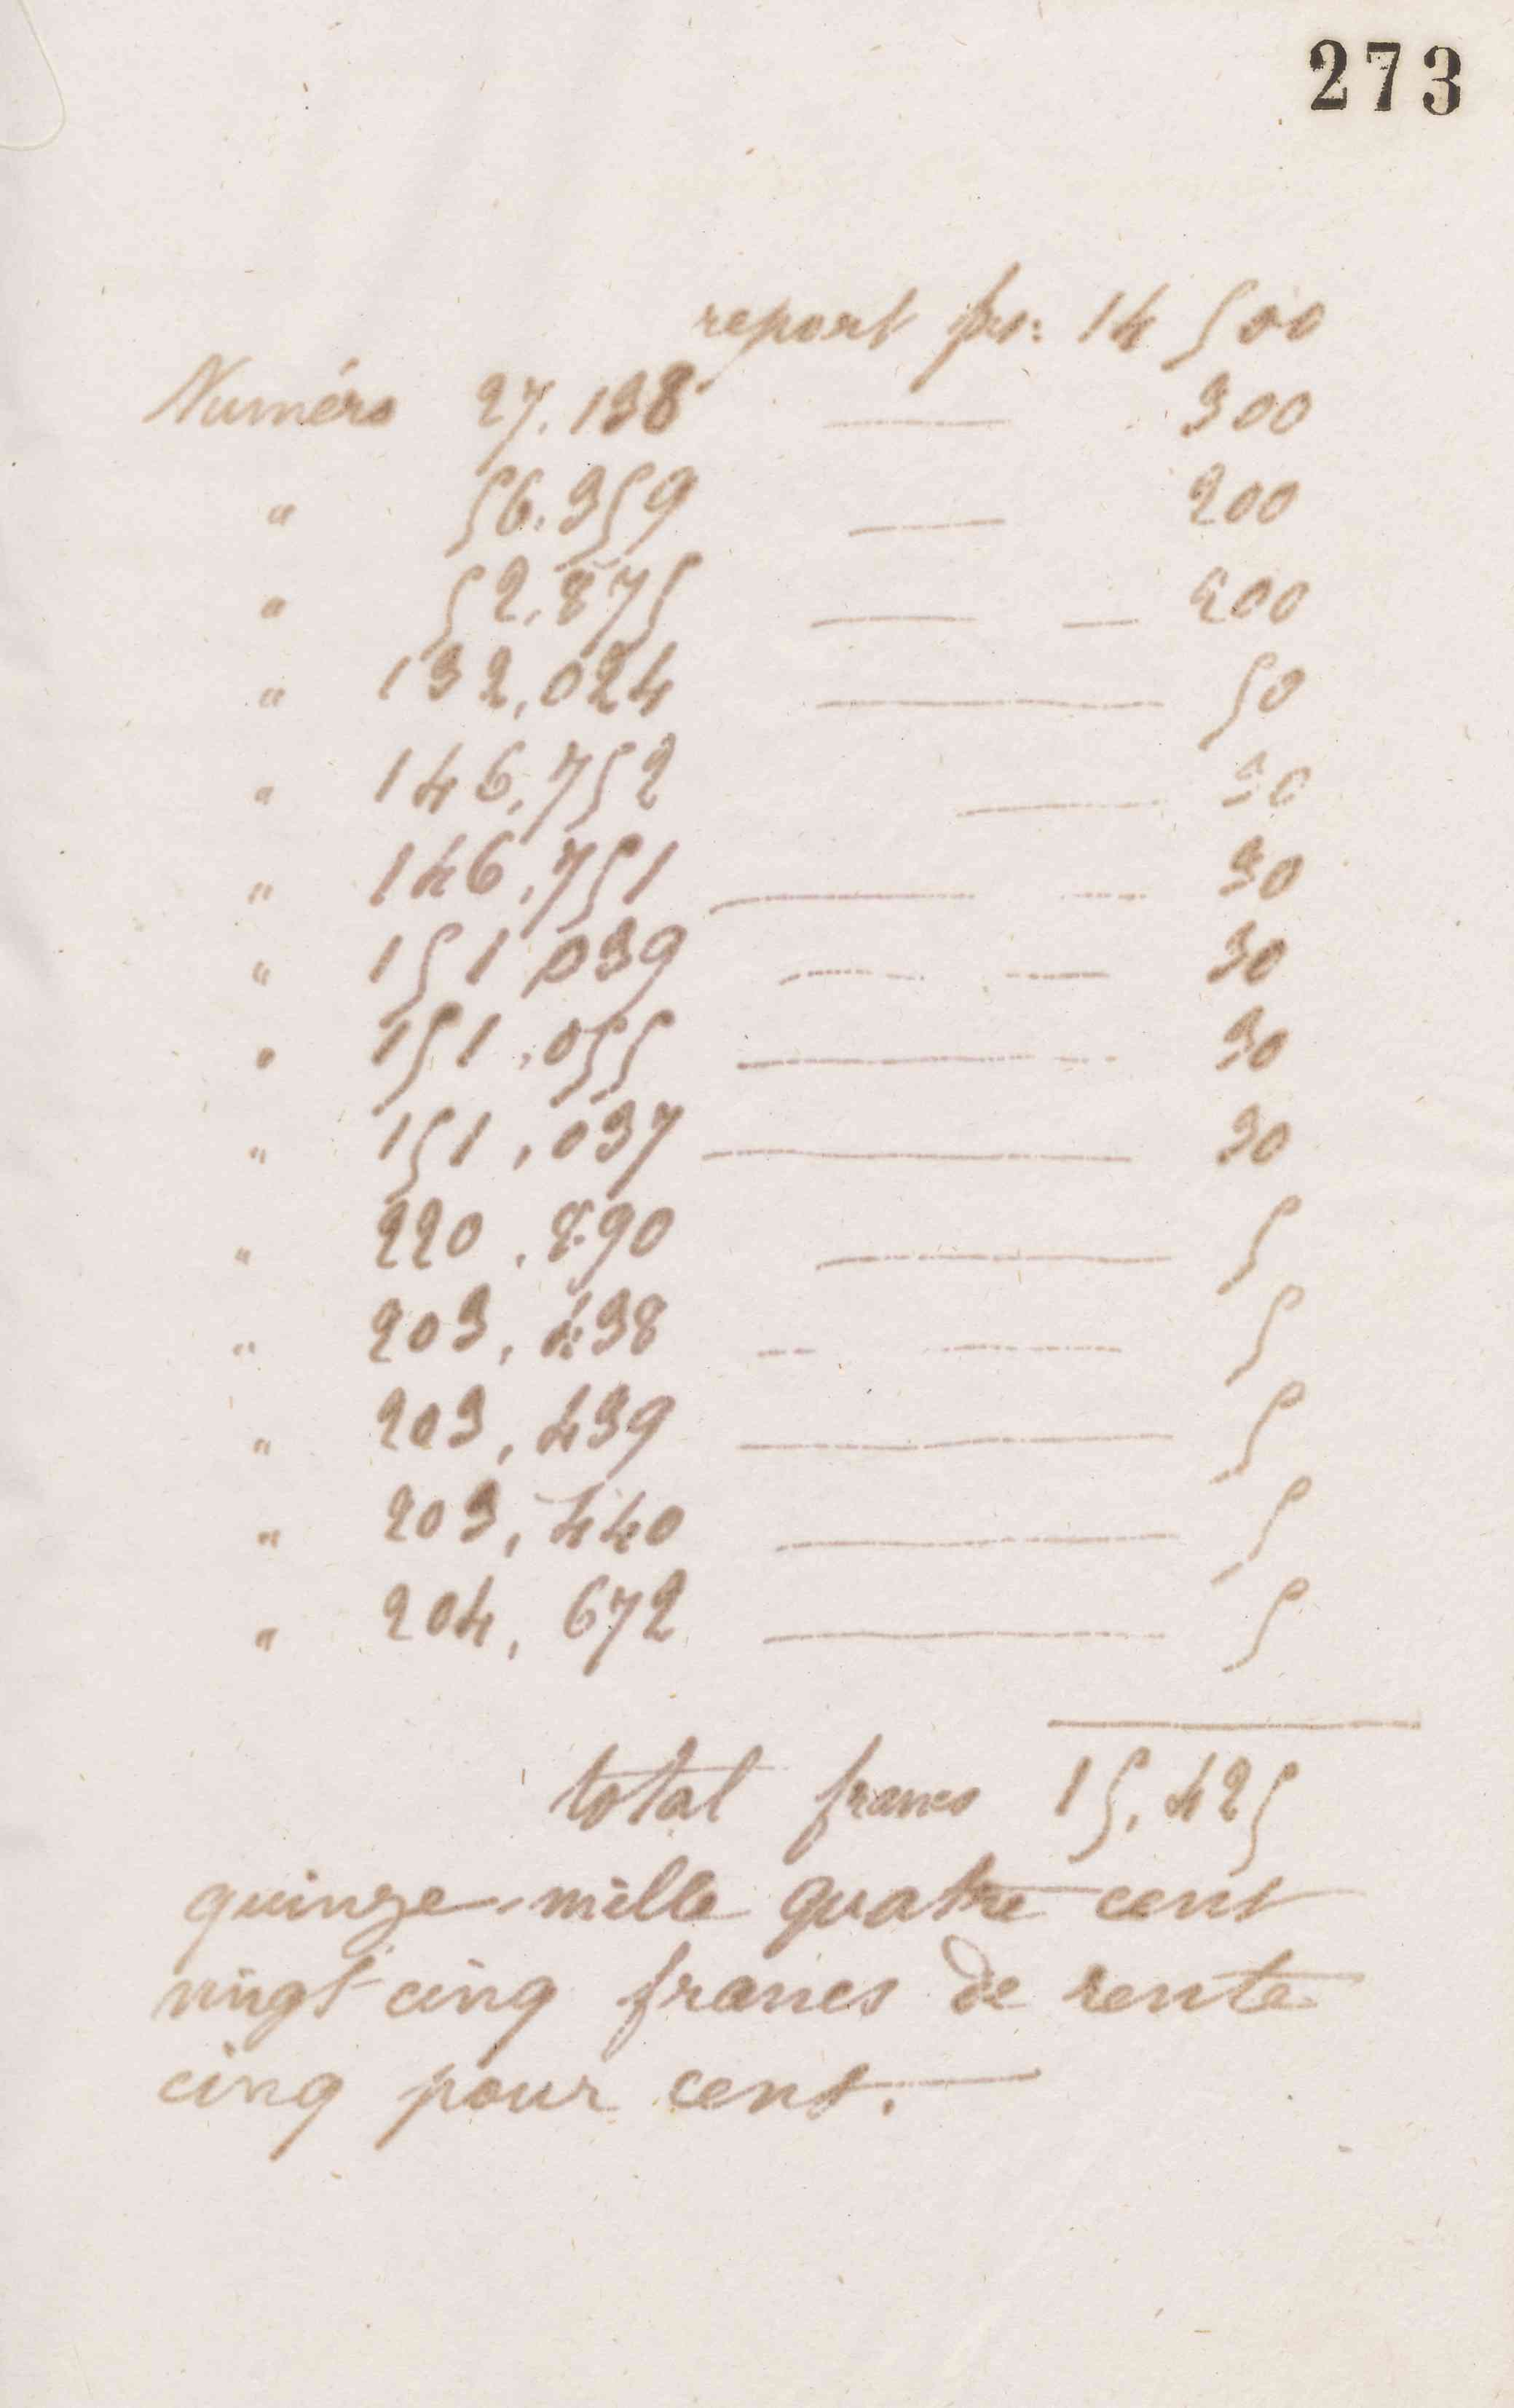 273
report frs: 14 500
Numéro 27.138 300
" 56.359 200
" 52,875 200
" 132,024 50
" 146,752 30
" 146,751 30
" 151,039 30
" 151,055 30
" 151,037 30
" 220,890 5
" 203,438 5
" 203,439 5
" 203,440 5
" 204,672 5
total francs 15,425
quinze mille quatre cent
vingt cinq francs de rente
cinq pour cent.